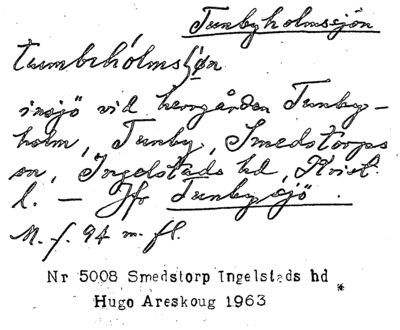 Tunbyholmssjön
tumbehólmsʃǿn
insjö vid herrgården Tunby-
holm, Tunby, Smedstorps
sn, Ingelstads hd, Krist.
l. — Jfr Tunbysjö.
M. f. 94 m. fl.
Nr 5008 Smedstorp Ingelstads hd *
Hugo Areskoug 1963